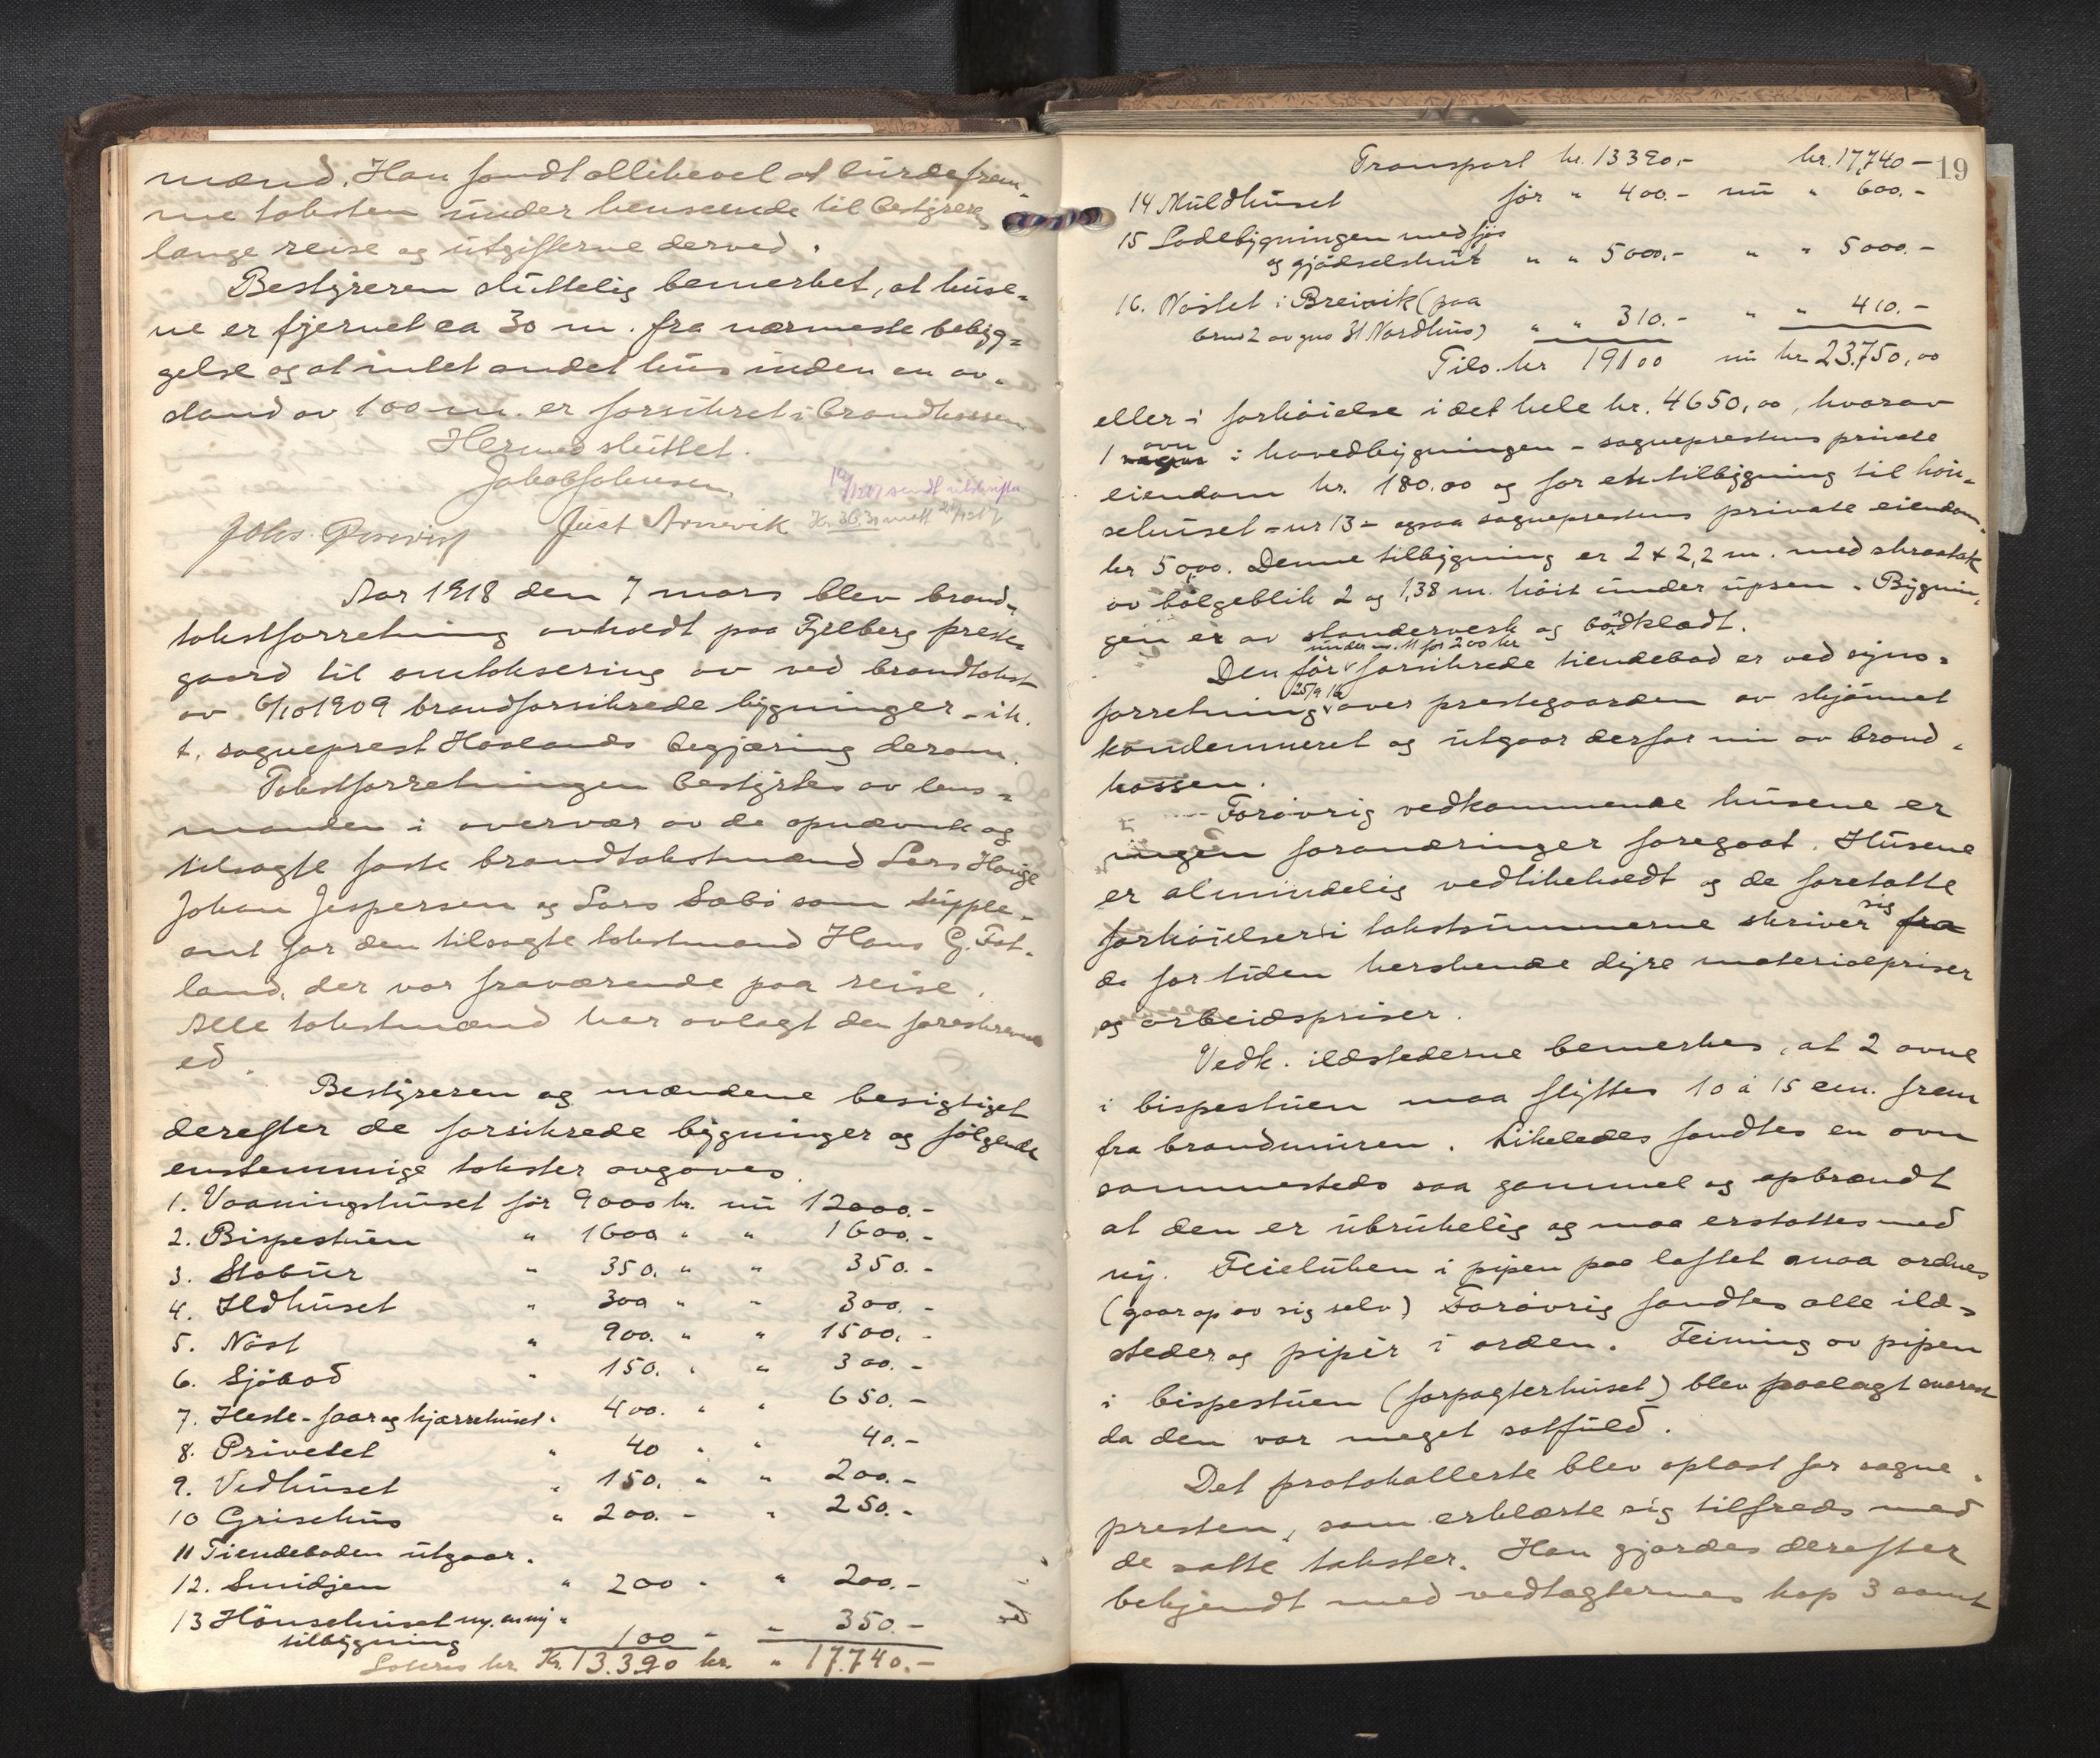 mænd. Han fandt allikevel at burde frem-
me taksten under henseende til bestyrers
lange reise og utgifterne derved.
Bestyreren sluttelig bemerket, at huse-
ne er fjernet ca 30 m. fra nærmeste bebyg-
gelse og at intet andet hus inden en av-
stand av 100 m. er forsikret i brandkassen
Hermed sluttet.
Jakob Johnsen.
sendt utskrifter
Just Arnevik
Aar 1918 den 7 mars blev brand-
takstforretning avholdt paa Fjelberg preste-
gaard til omtaksering av ved brandtakst
av 6/10 1909 brandforsikrede bygninger - ik.
t. sogneprest Hovlands begjæring derom.
Takstforretningen bestyrtes av lens-
manden i overvær av de opnævnte og
tilsagte faste brandtakstmænd Lars Hauge
Johan Jespersen og Lars Sæbö som supple-
ant for den tilsagte takstmand Hans G. Fat-
land, der var fraværende paa reise.
Alle takstmænd har avlagt den foreskrevne
ed.
Bestyreren og mændene besigtiget
derefter de forsikrede bygninger og fölgende
enstemmige takster avgaves.
1. Vaaningshuset för 9000 kr. nu 12000.-
2. Bispestuen " 1600 " " 1600.-
3. Stabur " 350. " " 350.-
4. Ildhuset " 300 " " 300.-
5. Nöst " 900. " " 1500.-
6. Sjöbod " 150. " " 300.-
7. Heste- faar og kjærrehuset " 400. " " 650.-
8. Privetet " 40 " " 40.-
9. Vedhuset " 150. " " 200.-
10 Grisehus " 200. - " 250.-
11 Tiendeboden utgaar.
12. Smidjen " 200 - " 200.-
13 Hönsehuset ny. en ny "
tilbygning 100 - " 350.-
Kr. 13.390 kr. " 17.740.-
19
Transport kr. 13390.- kr. 17,740 -
14 Muldhuset för " 400.- nu " 600.-
15 Ladebygningen med fjös
og gjödselshus " " 5000.- " " 5000.-
16. Nöstet i Breivik (paa
bruk 2 av gno 31 Nordhus) " " 310.- " " 410.-
Tils. kr 19100 nu kr 23.750,00
eller i forhöielse i det hele kr. 4650,00, hvorav
1 ovn i hovedbygningen - sogneprestens private
eiendom kr. 180.00 og for en tilbygning til hön-
sehuset - nr 13 - ogsaa sogneprestens private eiendom
kr 50,00. Denne tilbygning er 2 x 2,2 m. med skraatak
av bölgeblik 2 og 1,38 m. höit under upsen. Bygnin-
gen er av standerverk og bordklædt.
under nr. 11 for 200 kr
Den för forsikrede tiendebod er ved syns-
25/9 16
forretning over prestegaarden av skjönnet
kondemneret og utgaar derfor nu av brand-
kassen.
Foròvrig vedkommende husene er
ingen forandringer foregaat. Husene
er almindelig vedlikeholdt og de foretatte
forhöielser i takstsummerne skriver sig fra
de for tiden herskende dyre materialpriser
og arbeidspriser.
Vedk. ildstederne bemerkes, at 2 ovne
i bispestuen maa flyttes 10 à 15 cm. frem
fra brandmuren. Likeledes fandtes en ovn
sammesteds saa gammel og opbrændt
at den er ubrukelig og maa erstattes med
ny. Feieluken i pipen paa loftet maa ordnes
(gaar op av sig selv) Forøvrig fandtes alle ild-
steder og piper i orden. Feining av pipen
i bispestuen (forpagterhuset) blev paalagt
da den var meget sotfuld.
Det protokollerte blev oplæst for sogne-
presten, som erklærte sig tilfreds med
de satte takster. Han gjordes derefter
bekjendt med vedtægternes kap 3 samt